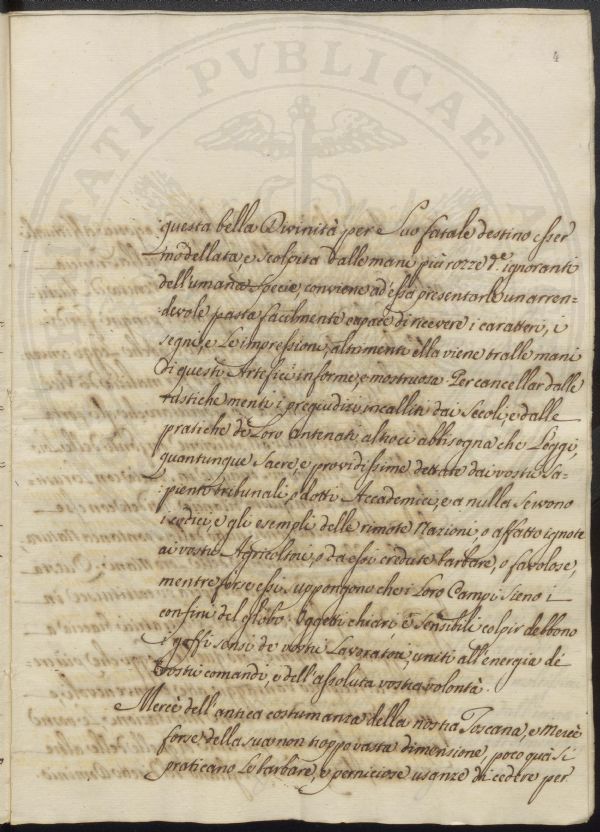 4
PVBLICAE
questa bella Divinità per Suo fatale destino esser
modellata, e scolpita dalle mani più rozze, ed ignoranti
dell'umana Specie, conviene ad essa presentarle un arren-
:devole pasta facilmente capace di ricevere i caratteri, i
segni, e Le impressioni, altrimenti ella viene tralle mani
di questi Artefici informe, e mostruosa. Per cancellar dalle
rustiche menti i pregiudizi incalliti dai Secoli, e dalle
pratiche de Loro Antenati, altro ci abbisogna che Leggi,
quantunque Sacre, e providissime dettate dai vostri Sa-
pienti tribunali, o dotti Accademici, e a nulla Servono
i codici, e gli esempli delle rimote Nazioni, o affatto ignote
ai vostri Agricoltori, o da essi credute barbare, o favolose,
mentre forse essi suppongono che i Loro Campi Sieno i
confini del globo. Oggetti chiari e Sensibili colpir debbono
i goffi sensi de' vostri Lavoratori, uniti all'energia dei
vostri comandi, e dell'assoluta vostra volontà.
Mercè dell'antica costumanza della nostra Toscana, e Mercè
forse della sua non troppo vasta dimensione, poco quà si
praticano le barbare, e perniciose usanze di cedere per